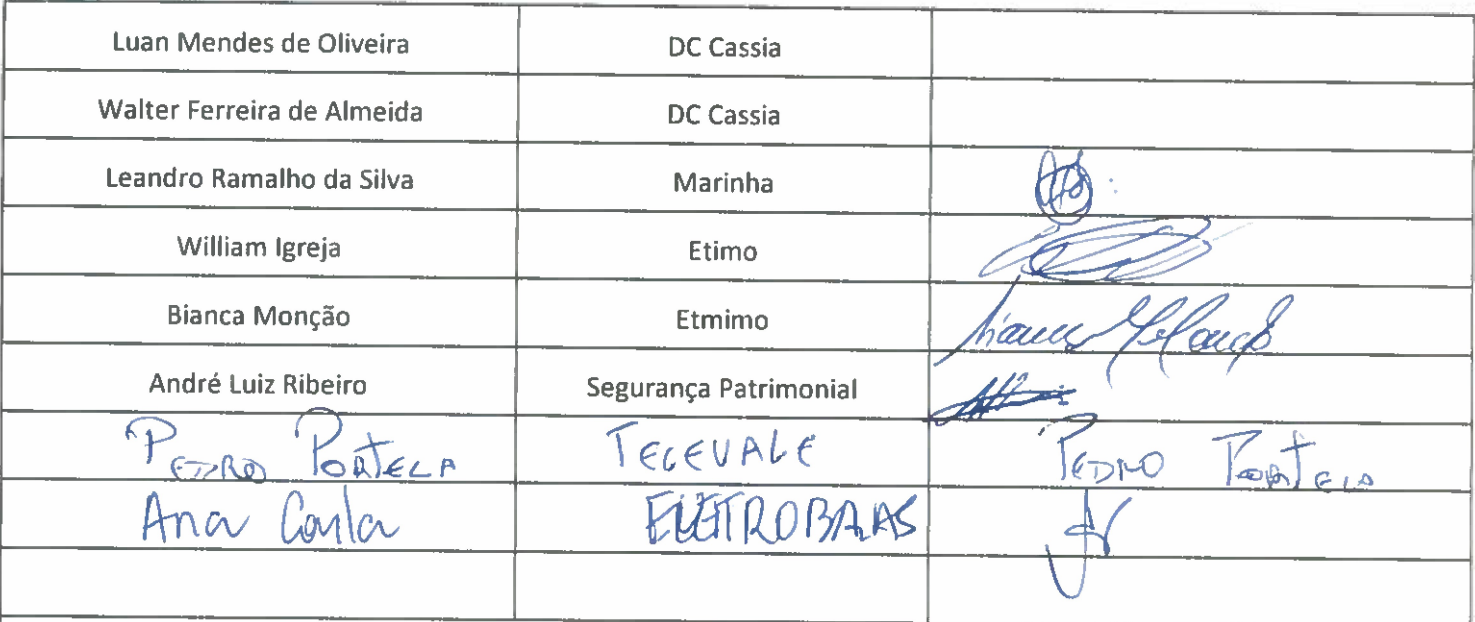 Luan Mendes de Oliveira DC Cassia
Walter Ferreira de Almeida DC Cassia
Leandro Ramalho da Silva Marinha
William Igreja Etimo
Bianca Monção Etmimo
André Luiz Ribeiro Segurança Patrimonial
PEDRO PORTELA TELEVALE PEDRO PORTELA
Ana Carla ELETROBRAS